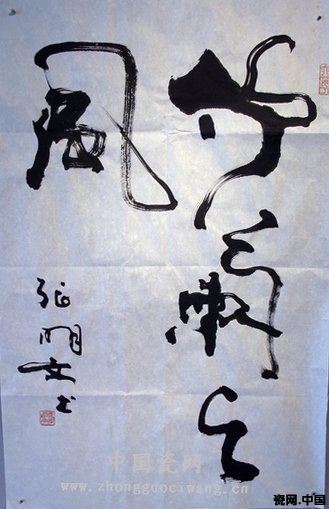 蘭之
風
张明文书
中国瓷网
www.zhongguociwang.cn
瓷网.中国